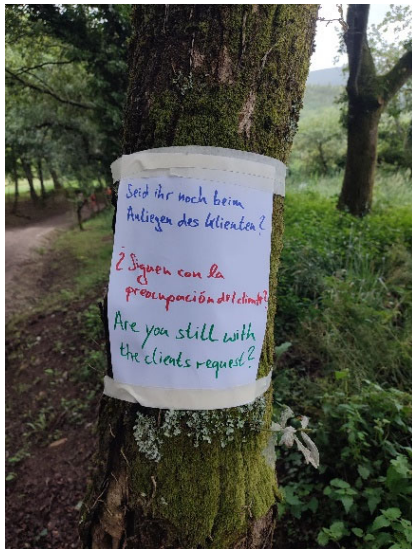 Seid ihr noch beim
Anliegen des Klienten?
¿ Siguen con la
preocupación del cliente?
Are you still with
the clients request?